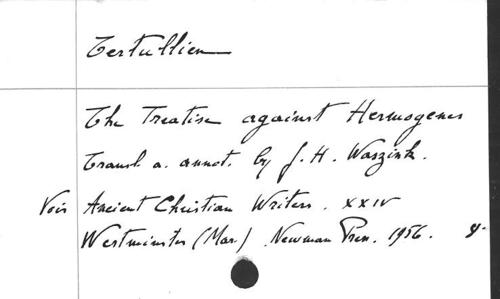 Tertullien
The Treatise against Hermogenes
Transl a. annot. by J. H. Waszink.
Voir Ancient Christian Writers. XXIV
Westminster (Mar.) Newman Press. 1956.